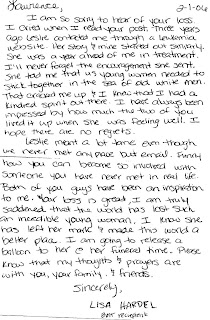 Lawrence, 2-1-06
I am so sorry to hear of your loss.
I cried when I read your post. Three years
ago Leslie contacted me through a leukemia
website. Her story & mine started out similarly.
She was a year ahead of me in treatment.
I'll never forget the encouragement she sent.
She told me that us young women needed to
stick together in the sea of old white men.
That cracked me up & I knew that I had a
kindred spirit out there. I have always been
impressed by how much the two of you
lived it up when she was feeling well. I
hope there are no regrets.
Leslie meant a lot to me even though
we never met any place but email. Funny
how you can become so involved with
someone you have never met in real life.
Both of you guys have been an inspiration
to me. Your loss is great, I am truly
saddened that the world has lost such
an incredible young woman. I know she
has left her mark & made this world a
better place. I am going to release a
balloon to her @ her funeral time. Please
know that my thoughts & prayers are
with you, your family, & friends.
Sincerely,
LISA HARDEL
BMT recipient